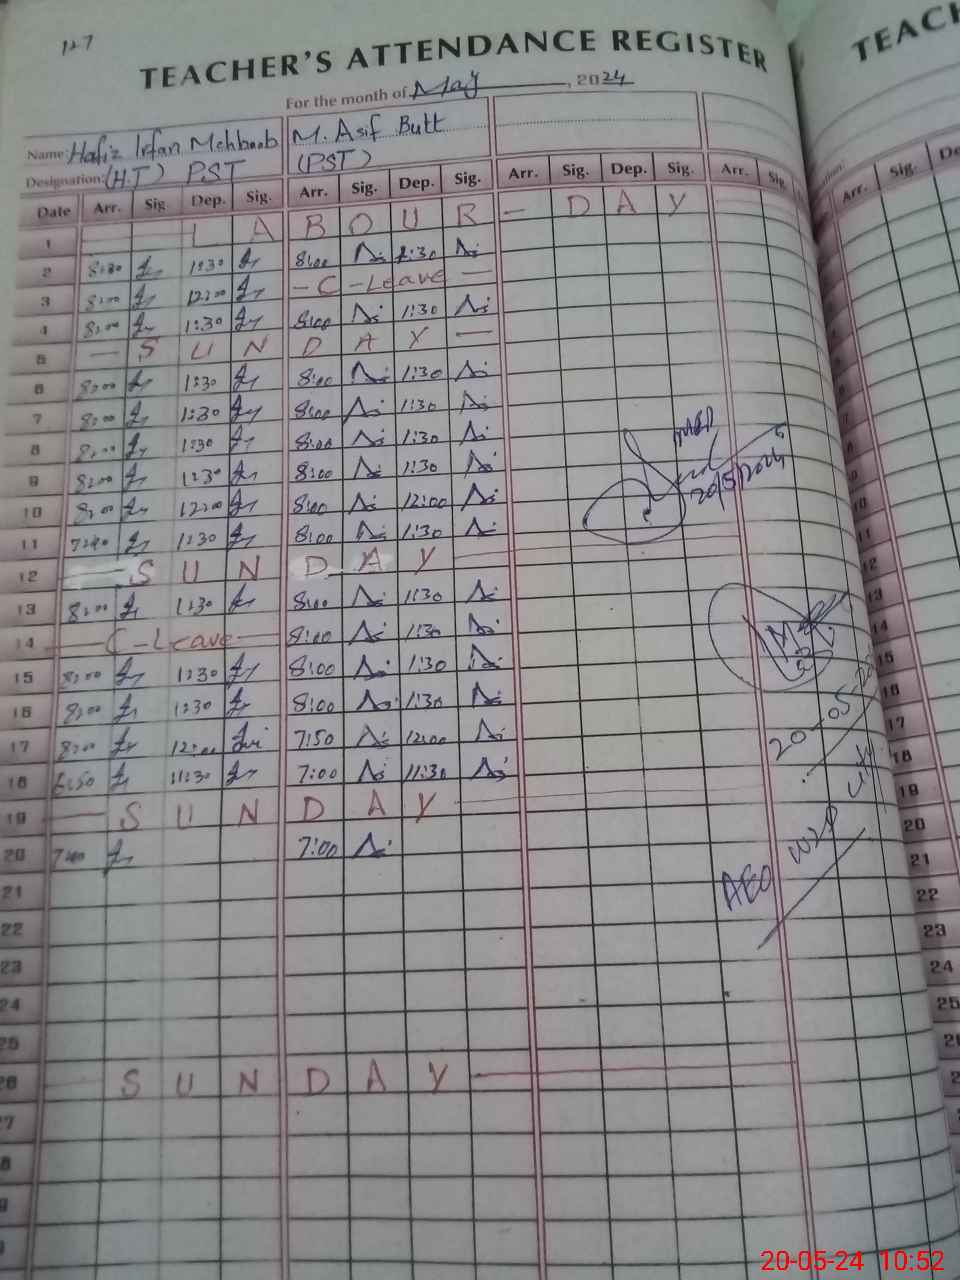 127
TEACHER'S ATTENDANCE REGISTER
TEAC
For the month of May, 2024
Name: Hafiz Irfan Mehboob M. Asif Butt
Designation: (H.T) PST (PST)
Date Arr. Sig. Dep. Sig. Arr. Sig. Dep. Sig. Arr. Sig. Dep. Sig. Arr. Sig. Arr. Sig. De
1 LABOUR - DAY
2 8:00 1:30 8:00 1:30
3 8:00 12:00 - C - Leave -
4 8:00 1:30 8:00 1:30
5 - SUNDAY -
6 8:00 1:30 8:00 1:30
7 8:00 1:30 8:00 1:30
8 8:00 1:30 8:00 1:30
9 8:00 1:30 8:00 1:30
10 8:00 12:00 8:00 12:00
11 7:40 1:30 8:00 1:30
12 SUNDAY
13 8:00 1:30 8:00 1:30
14 - C - Leave - 8:00 1:30
15 8:00 1:30 8:00 1:30
16 8:00 1:30 8:00 1:30
17 8:00 12:00 7:50 12:00
18 6:50 11:30 7:00 11:30
19 - SUNDAY
20 7:00 7:00
21
22
23
24
25
26 SUNDAY
20/5/2024
20-05-20
AEO
10
11
12
13
14
15
16
17
18
19
20
21
22
23
24
25
20-05-24 10:52